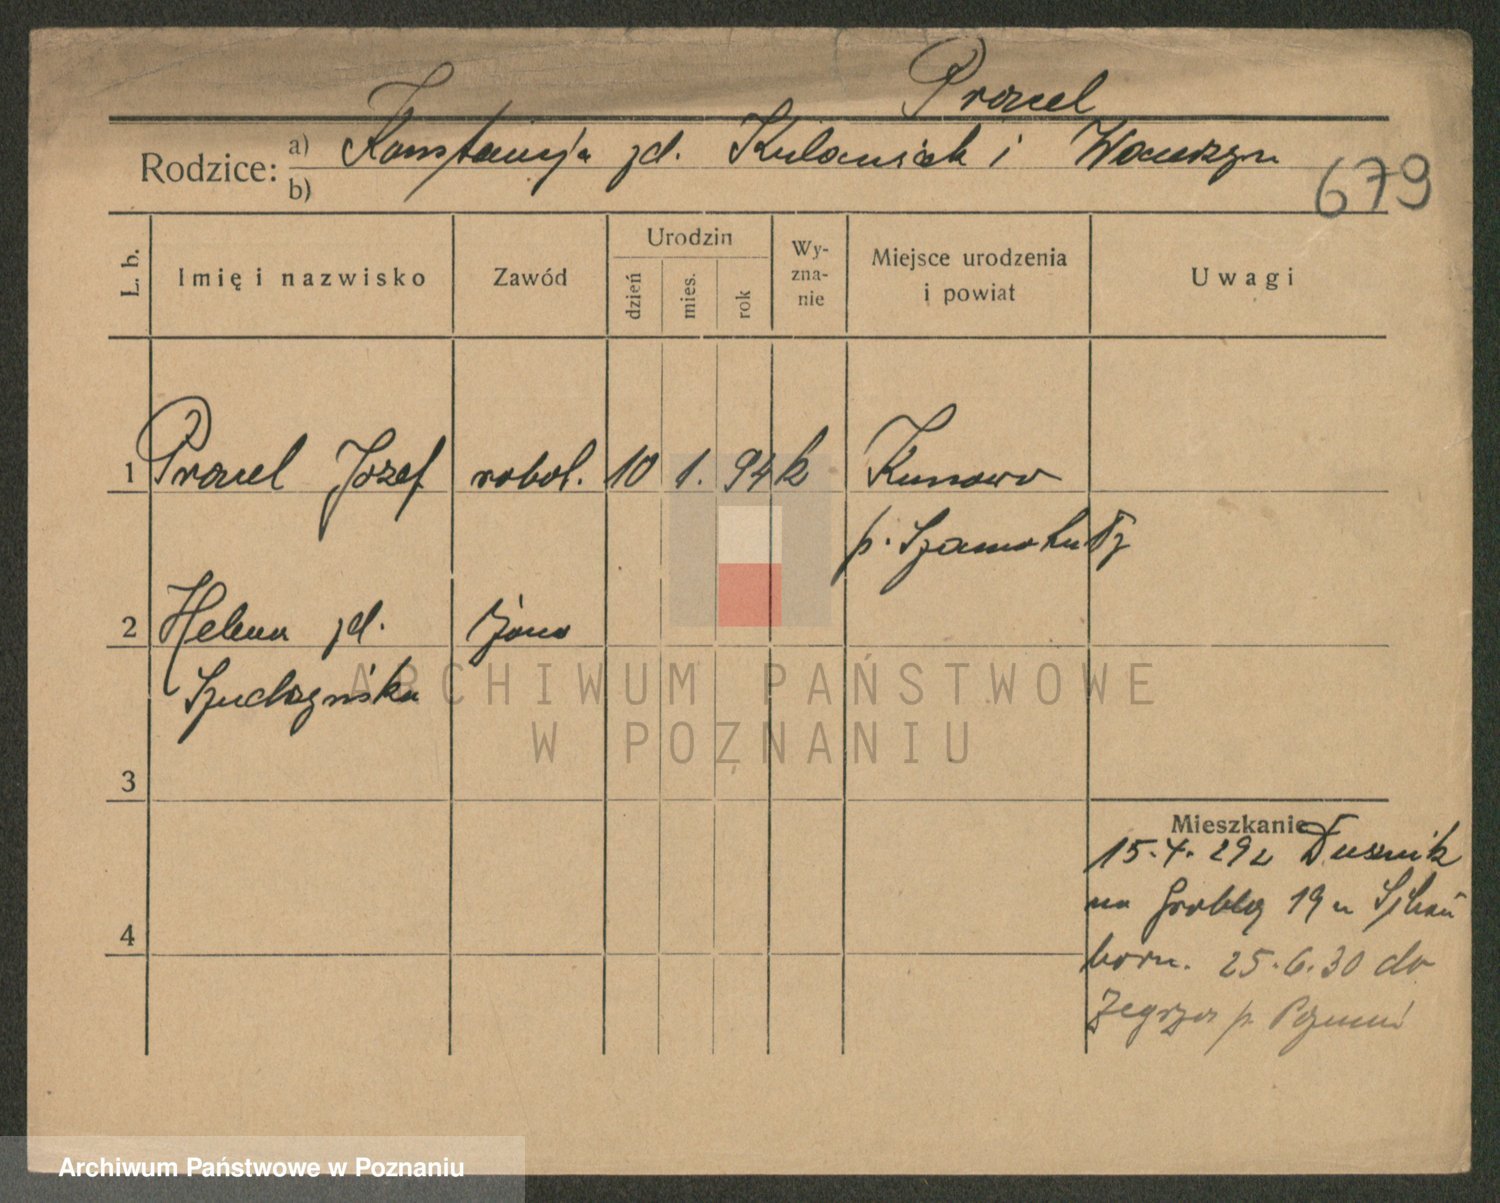 Pracel
Rodzice: a) Konstancja zd. Kulawiak i Wawrzyn
b)
679
L. b.
Imię i nazwisko
Zawód
Urodzin
dzień
mies.
rok
Wy-
zna-
nie
Miejsce urodzenia
i powiat
Uwagi
1 Pracel Józef robot. 10 1. 94 k Kunowo
p. Szamotuły
2 Helena zd. żona
3
4
Mieszkanie
15.4.29 z Dusznik
na Grobla 19 u
born. 25.6.30 do
Zegrza p. Poznań
ARCHIWUM PAŃSTWOWE
W POZNANIU
Archiwum Państwowe w Poznaniu